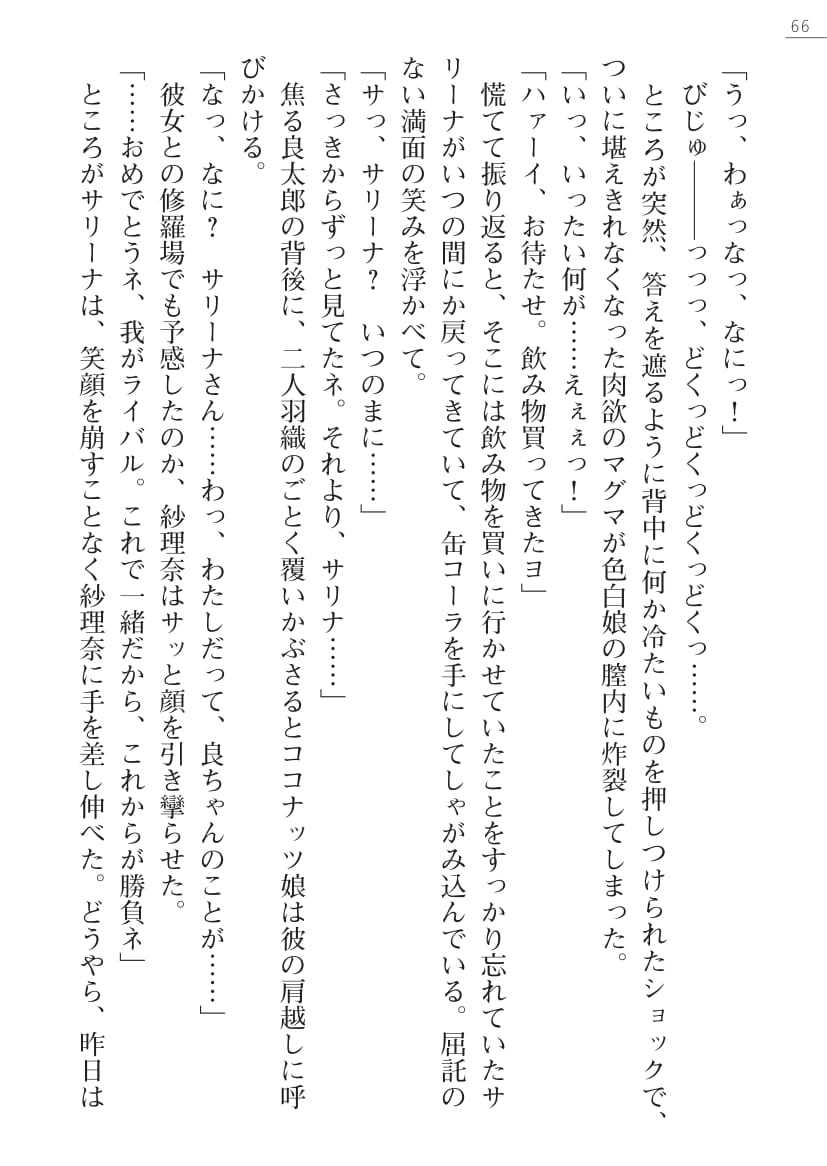 66
「うっ、わぁっなっ、なにっ！」
びじゅ――――っっっ、どくっどくっどくっどくっ……。
ところが突然、答えを遮るように背中に何か冷たいものを押しつけられたショックで、
ついに堪えきれなくなった肉欲のマグマが色白娘の膣内に炸裂してしまった。
「いっ、いったい何が……えぇぇっ！」
「ハァーイ、お待たせ。飲み物買ってきたヨ」
慌てて振り返ると、そこには飲み物を買いに行かせていたことをすっかり忘れていたサ
リーナがいつの間にか戻ってきていて、缶コーラを手にしてしゃがみ込んでいる。屈託の
ない満面の笑みを浮かべて。
「サっ、サリーナ？　いつのまに……」
「さっきからずっと見てたネ。それより、サリナ……」
焦る良太郎の背後に、二人羽織のごとく覆いかぶさるとココナッツ娘は彼の肩越しに呼
びかける。
「なっ、なに？　サリーナさん……わっ、わたしだって、良ちゃんのことが……」
彼女との修羅場でも予感したのか、紗理奈はサッと顔を引き攣らせた。
「……おめでとうネ、我がライバル。これで一緒だから、これからが勝負ネ」
ところがサリーナは、笑顔を崩すことなく紗理奈に手を差し伸べた。どうやら、昨日は